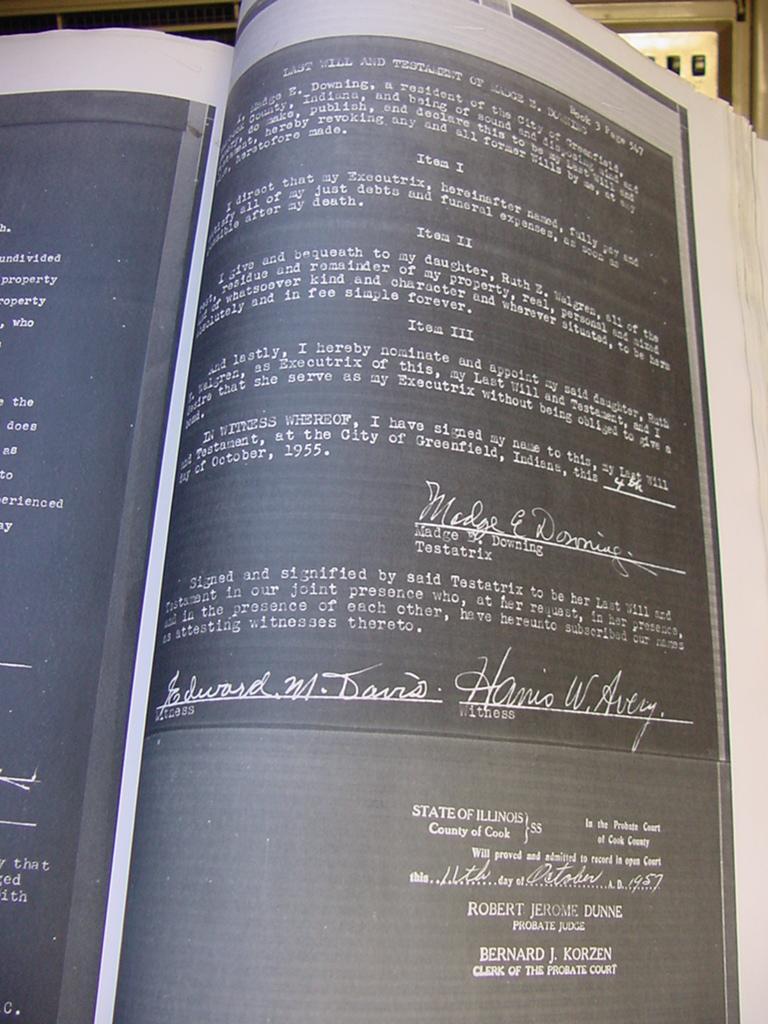 h.
undivided
property
roperty
, who
e the
does
as
to
erienced
ay
y that
ged
ith
C.
Book 3 Page 547
LAST WILL AND TESTAMENT OF MADGE E. DOWNING
I, Madge E. Downing, a resident of the City of Greenfield,
County, Indiana, and being of sound and disposing mind and
do make, publish, and declare this to be my last will and
hereby revoking any and all former Wills by me, at any
heretofore made.
Item I
I direct that my Executrix, hereinafter named, fully pay and
satisfy all of my just debts and funeral expenses, as soon as
after my death.
Item II
I give and bequeath to my daughter, Ruth E. Walgren, all of the
rest, residue and remainder of my property, real, personal and mixed
of whatsoever kind and character and wherever situated, to be hers
absolutely and in fee simple forever.
Item III
And lastly, I hereby nominate and appoint my said daughter, Ruth
E. Walgren, as Executrix of this, my Last Will and Testament, and I
desire that she serve as my Executrix without being obliged to give a
bond.
IN WITNESS WHEREOF, I have signed my name to this, my Last Will
and Testament, at the City of Greenfield, Indiana, this 4th
day of October, 1955.
Madge E Downing
Madge E. Downing
Testatrix
Signed and signified by said Testatrix to be her Last Will and
Testament in our joint presence who, at her request, in her presence,
and in the presence of each other, have hereunto subscribed our names
as attesting witnesses thereto.
Edward M. Davis. Harris W. Avery.
Witness Witness
STATE OF ILLINOIS } SS In the Probate Court
County of Cook of Cook County
Will proved and admitted to record in open Court
this 11th day of October A.D. 1957
ROBERT JEROME DUNNE
PROBATE JUDGE
BERNARD J. KORZEN
CLERK OF THE PROBATE COURT